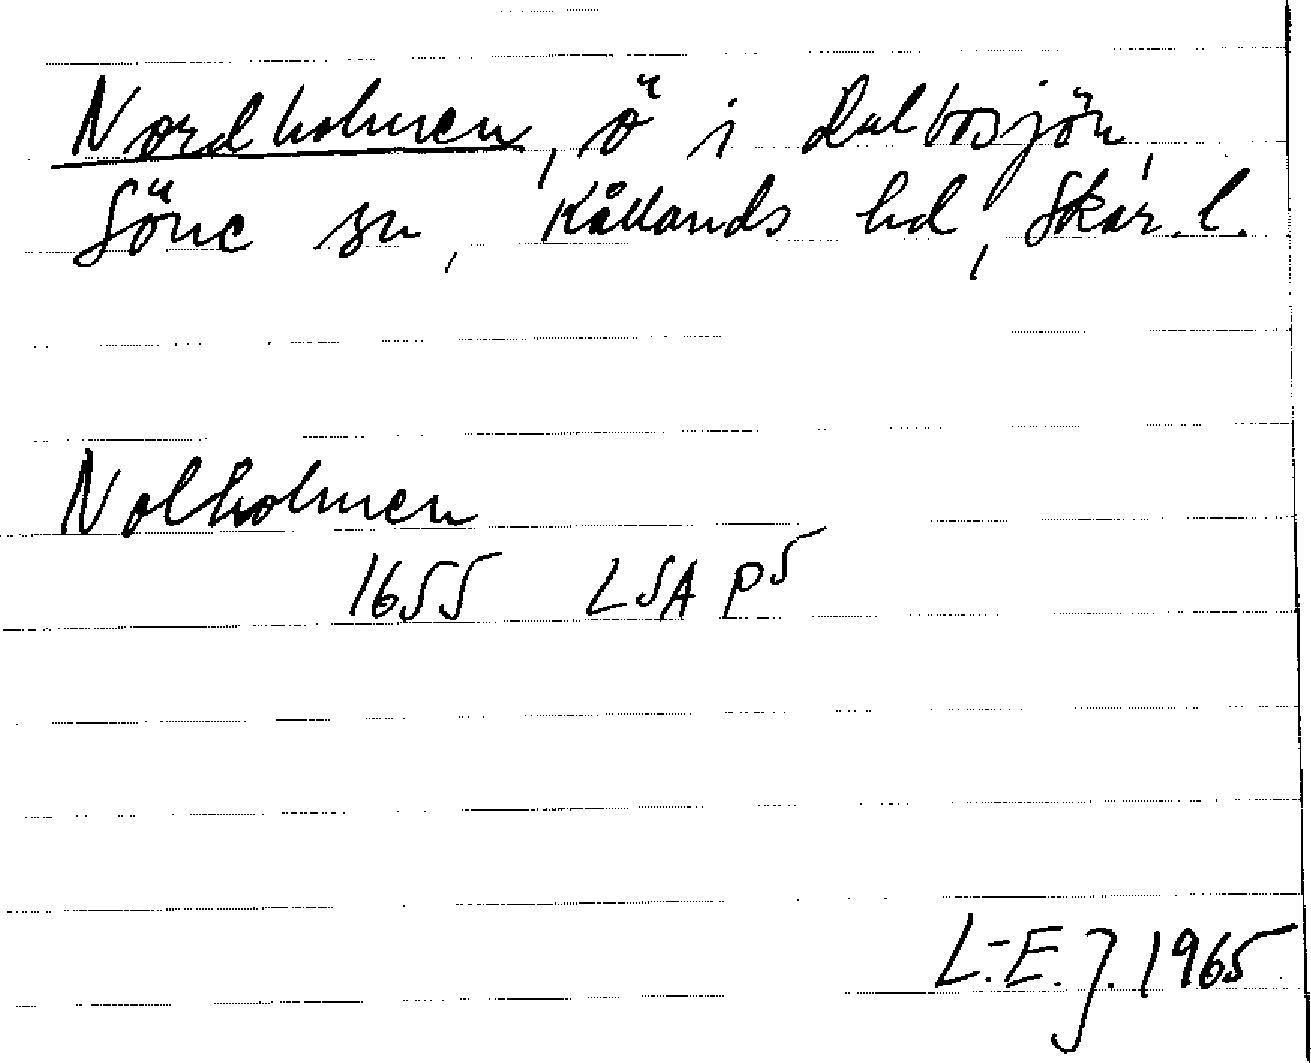 Nordholmen, ö i Dalbosjön,
Söne sn, Kållands hd, Skar. l.
Nolholmen
1655 LSA P5
L.-E. J. 1965